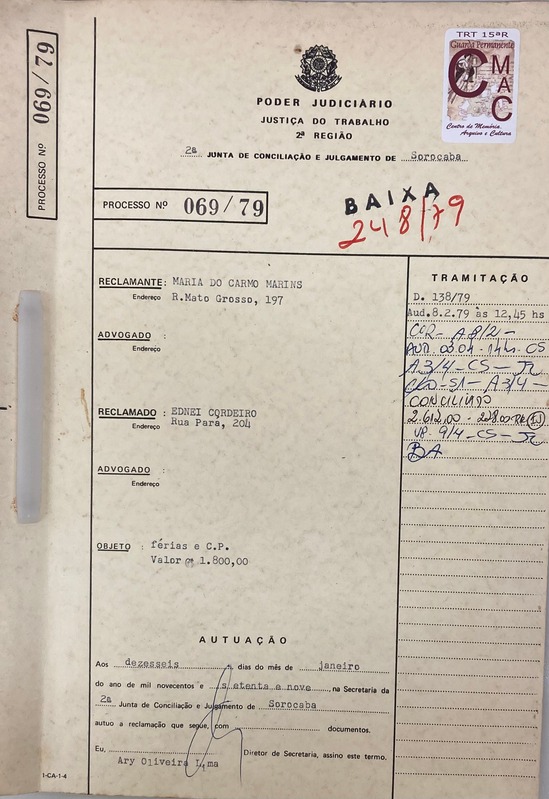 PROCESSO Nº 069/79
TRT 15ªR
Guarda Permanente
CMAC
Centro de Memória,
Arquivo e Cultura
PODER JUDICIÁRIO
JUSTIÇA DO TRABALHO
2ª REGIÃO
2a JUNTA DE CONCILIAÇÃO E JULGAMENTO DE Sorocaba
PROCESSO Nº 069/79
BAIXA
248/79
RECLAMANTE: MARIA DO CARMO MARINS
Endereço R.Mato Grosso, 197
ADVOGADO :
Endereço
RECLAMADO : EDNEI CORDEIRO
Endereço Rua Para, 204
ADVOGADO :
Endereço
OBJETO : férias e C.P.
Valor 1.800,00
TRAMITAÇÃO
D. 138/79
Aud.8.2.79 às 12,45 hs
A 8/2 -
CS
A3/4-CS-
A-3/4-
CONCILIADO
2.612,00 -
9/4-CS-
BA
AUTUAÇÃO
Aos dezesseis , dias do mês de janeiro
do ano de mil novecentos e setenta e nove , na Secretaria da
2a Junta de Conciliação e Julgamento de Sorocaba
autuo a reclamação que segue, com documentos.
Eu, Diretor de Secretaria, assino este termo.
Ary Oliveira Lima
1-CA-1-4